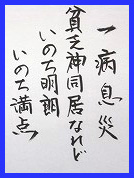 一病息災
貧乏神同居なれど
いのち明朗
いのち満点